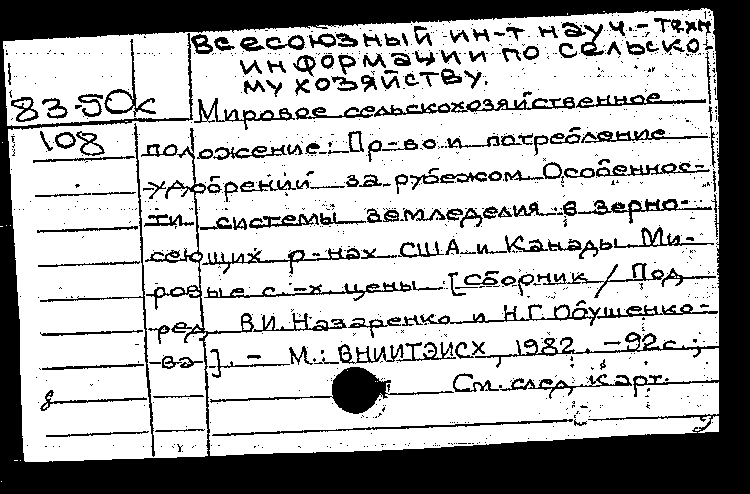 Всесоюзный ин-т науч.-техн.
информации по сельско-
му хозяйству.
83-50к
108
Мировое сельскохозяйственное
положение: Пр-во и потребление
удобрений за рубежом. Особеннос-
ти системы земледелия в зерно-
сеющих р-нах США и Канады. Ми-
ровые с.-х. цены. [Сборник / Под
ред. В.И. Назаренко и Н.Г. Обушенко-
ва]. - М.: ВНИИТЭИСХ, 1982. - 92 с.;
См. след. карт.